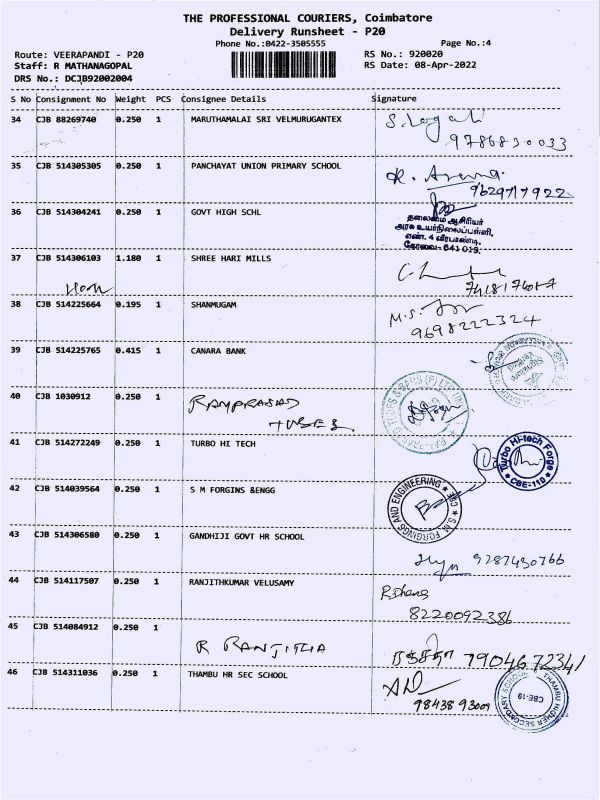 THE PROFESSIONAL COURIERS, Coimbatore
Delivery Runsheet - P20
Phone No.:0422-3505555 Page No.:4
Route: VEERAPANDI - P20 RS No.: 920020
Staff: R MATHANAGOPAL RS Date: 08-Apr-2022
DRS No.: DCJB92002004
S No Consignment No Weight PCS Consignee Details Signature
34 CJB 88269740 0.250 1 MARUTHAMALAI SRI VELMURUGANTEX
9786830033
35 CJB 514305305 0.250 1 PANCHAYAT UNION PRIMARY SCHOOL
9629717922
36 CJB 514304241 0.250 1 GOVT HIGH SCHL
தலைமை ஆசிரியர்
அரசு உயர்நிலைப்பள்ளி,
எண். 4 வீரபாண்டி,
கோவை-641 019.
37 CJB 514306103 1.180 1 SHREE HARI MILLS
38 CJB 514225664 0.195 1 SHANMUGAM
M.S.
9698222324
39 CJB 514225765 0.415 1 CANARA BANK
40 CJB 1030912 0.250 1 RAMPRASAD
TUBES
41 CJB 514272249 0.250 1 TURBO HI TECH
Turbo Hi-tech Forge
CBE-110
42 CJB 514039564 0.250 1 S M FORGINS &ENGG
S.M. FORGINGS AND ENGINEERING CBE
43 CJB 514306580 0.250 1 GANDHIJI GOVT HR SCHOOL
9287430766
44 CJB 514117507 0.250 1 RANJITHKUMAR VELUSAMY
8220092386
45 CJB 514084912 0.250 1
R RANJITHA
ரஞ்சிதா 7904672341
46 CJB 514311036 0.250 1 THAMBU HR SEC SCHOOL
9843893009
THAMBU HIGHER SECONDARY SCHOOL
CBE-19